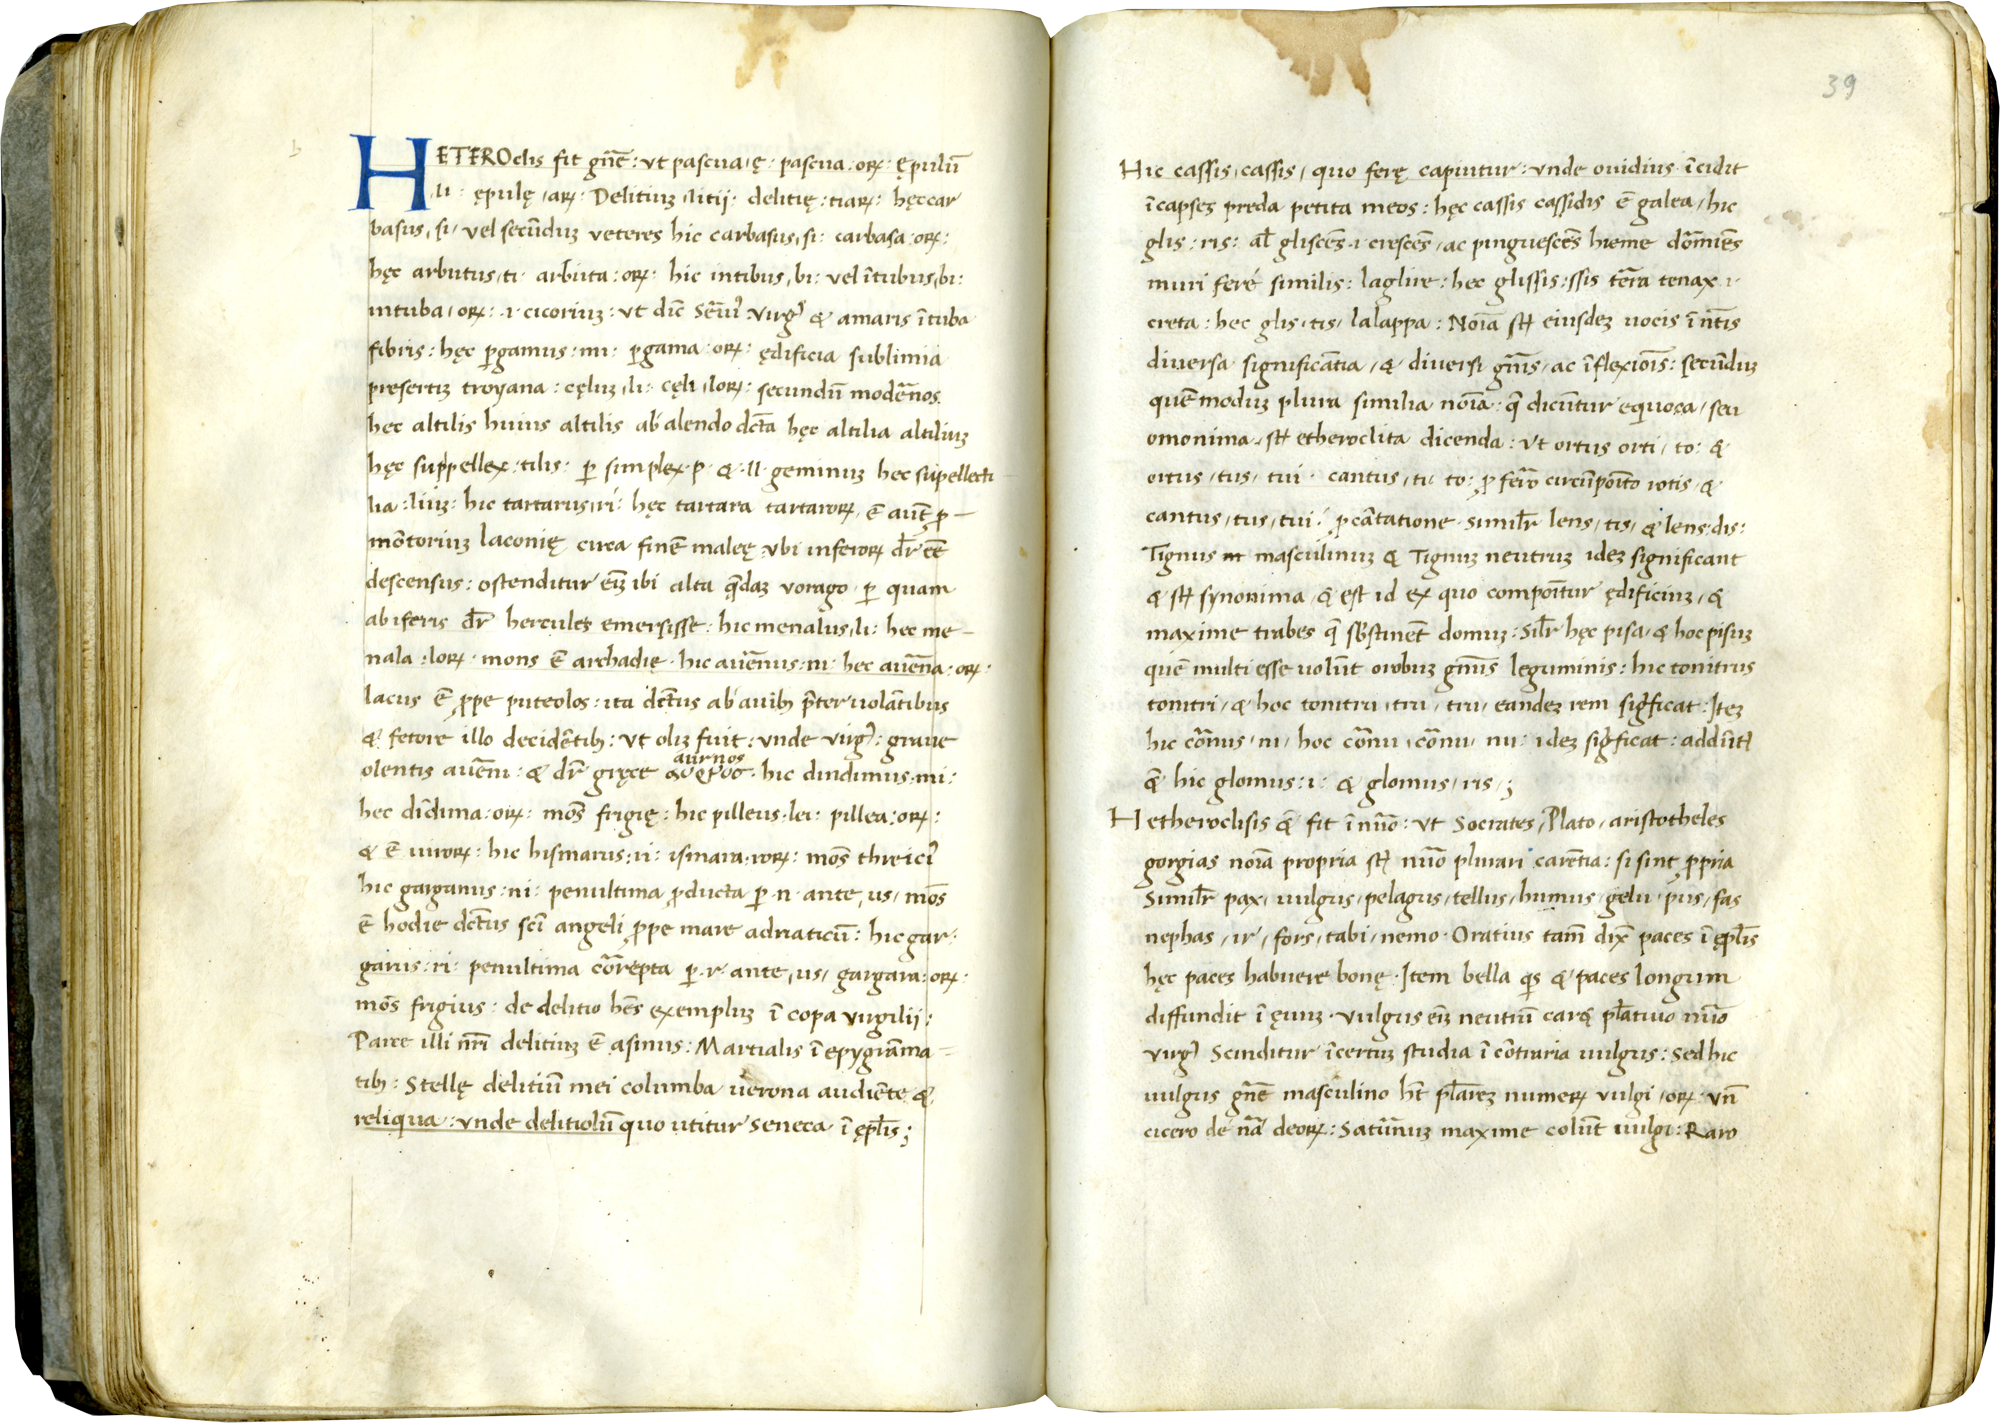 HETEROclis fit gn̄e: ut pascua, ę: pascua: orꝝ: ępulū
li: ępulę, arꝝ: Delitiuꝫ, litij: delitię: tiarꝝ: hęc car
basus, si, vel secūduꝫ veteres hic carbasus, si: carbasa: orꝝ:
hęc arbutus, ti: arbuta: orꝝ: hic intibus, bi: vel ītubus, bi:
intuba, orꝝ: .i. cicoriuꝫ: ut dic̄ & amaris ītuba
fibris: hęc ꝑgamus: mi: ꝑgama: orꝝ: ędificia sublimia
presertiꝫ troyana: cęluꝫ, li: cęli, lorꝝ: secundū modēnos
hec altilis huius altilis ab alendo dc̄ta hęc altilia altiliuꝫ
hęc suppellex: tilis: ꝑ simplex .p. & .ll. geminuꝫ hec supellecti
lia: liuꝫ: hic tartarus, ri: hęc tartara tartarorꝝ, ē aut̄ ꝓ-
mōtoriuꝫ laconię circa finē maleę ubi inferorꝝ dr̄ eē
descensus: ostenditur eīꝫ ibi alta quędaꝫ vorago, ꝑ quam
ab īferis dr̄ hercules emersisse: hic menalus, li: hec me-
nala: lorꝝ: mons ē archadię: hic auēnus: ni: hec auēna: orꝝ:
lacus ē ꝓpe puteolos: ita dc̄tus ab auibꝫ p̄teruolātibus
& fetore illo decidētibꝫ: ut olīꝫ fuit: unde uirgꝰ: graue
aurnos
olentis auēni: & dr̄ gręce αορνος. hic dindimus: mi:
hec dīdima: orꝝ: mōs frigię: hic pilleus: lei: pillea: orꝝ:
& ē uirorꝝ: hic hismarus: ri: ismara: rorꝝ: mōs threici
hic garganus: ni: penultima ꝓducta ꝑ .n. ante, us, mōs
ē hodie dc̄tus scī angeli ꝓpe mare adriaticū: hic gar:
garus: ri: penultima cōrepta ꝑ .r. ante, us, gargara: orꝝ:
mōs frigius: de delitio hēs exempluꝫ ī copa virgilij:
Parce illi nr̄i delitiuꝫ ē asinus: Martialis ī epygrāma-
tibꝫ: Stellę delitiū mei columba uerona audiēte &
reliqua: unde delitiolū quo utitur Seneca ī ępl̄is;
39
Hic cassis, cassis, quo ferę capiuntur: unde ouidius īcidit
ī capses preda petita meos: hęc cassis cassidis ē galea, hic
glis: ris: al̄ gliscēs .i. crescēs, ac pinguescēs hieme dōmiēs
muri feré similis: la glire: hec glissis: ssis tēra tenax .i.
creta: hec glis, tis, la lappa: Noīa sꝉt eiusdeꝫ uocis īn̄tis
diuersa significātia, & diuersi gn̄is, ac īflexiōis: secūduꝫ
quē moduꝫ plura similia noīa: quę dicūtur equoca, seu
omonima, sꝉt etheroclita dicenda: Ut ortus orti, to: &
ortus, tus, tui: cantus, ti, to: ꝓ fērō circūpoīto rotis, &
cantus, tus, tui: ꝓ cātatione. Simil̄r lens, tis, & lens: dis:
Tignus masculinuꝫ & Tignuꝫ neutruꝫ ideꝫ significant
& sꝉt synonima, & est id ex quo compoītur ędificiuꝫ, &
maxime trabes quę sꝰstinēt domuꝫ: Sil̄r hęc pisa, & hoc pisuꝫ
quē multi esse uolūt orobuꝫ gn̄us leguminis: hic tonitrus
tonitri, & hoc tonitru, tru, tru, eandeꝫ rem sig̔ficat: Iteꝫ
hic cōrnus, ni, hoc cōrnu, cōrnu, nu: ideꝫ sig̔ficat: addūt
quę hic glomus: i: & glomus, ris,;
Hetheroclisis quę fit ī nūo: ut Socrates, Plato, aristotheles
gorgias noīa propria sꝉt nūo plurari carētia: si sint ꝓpria
Simil̄r pax, uulgus, pelagus, tellus, humus, gelu, pus, fas
nephas, ir, fors, tabi, nemo. Oratius tam̄ dix̄ paces ī ępl̄is
hęc paces habuere bonę. Item bella quis & paces longum
diffundit ī ęuuꝫ. vulgus eīꝫ neutrū caret pl̄atiuo nūo
virgꝰ Scinditur īcertuꝫ studia ī cōtraria uulgus: Sed hic
uulgus gn̄e masculino ht̄ pl̄areꝫ numerꝝ vulgi, orꝝ: un̄
cicero de nā deorꝝ: Satūnuꝫ maxime colūt uulgi: Raro